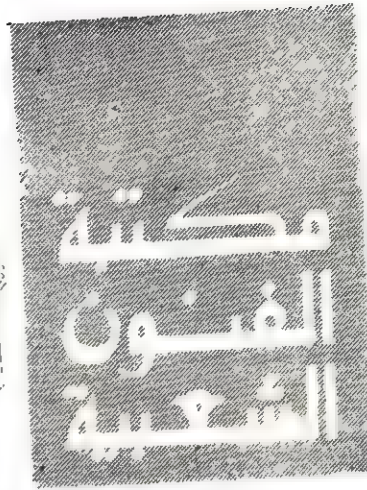 مكتبة
الفنون
الشعبية